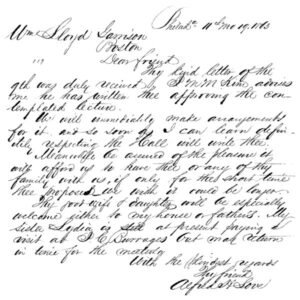 Philada 11th mo 19. 1863
Wm Lloyd Garrison
Boston
Dear friend
Thy kind letter of the
9th was duly received by J M McKim advises
me he has written thee approving the con-
templated lecture.
We will immediately make arrangements
for it, and so soon as I can learn defin-
itely respecting the Hall will write thee.
Meanwhile be assured of the pleasure it
will afford us to have thee or any of thy
family with us, if only for the short time
thee proposes we wish it could be longer.
Thy good wife & daughter will be especially
welcome either to my house or father's. My
sister Lydia is at present paying a
visit at J E Burrages but may return
in time for the meeting
With the kindest regards
Thy friend
Alfred H Love